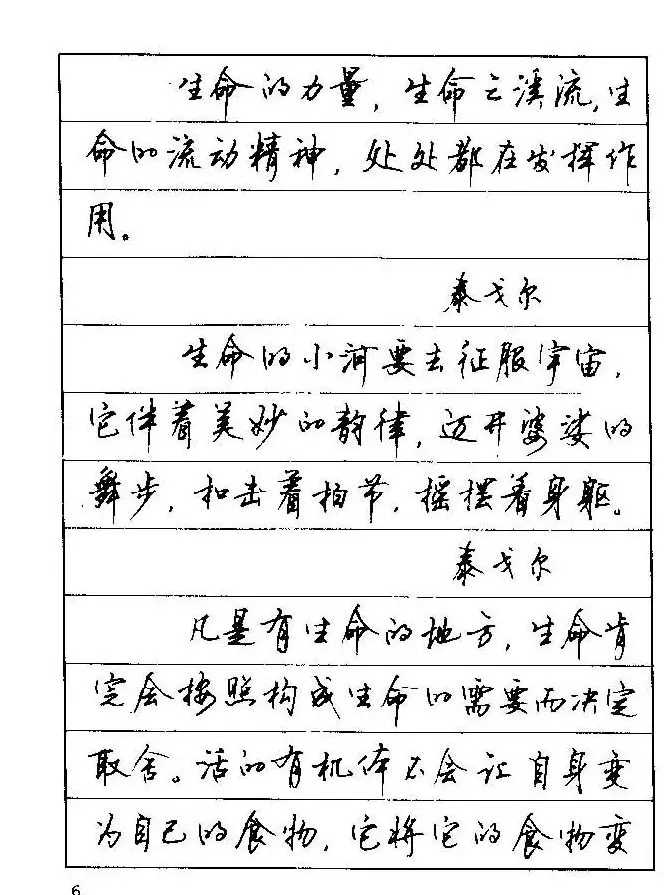 生命的力量，生命之溪流，生
命的流动精神，处处都在发挥作
用。
泰戈尔
生命的小河要去征服宇宙，
它伴着美妙的韵律，迈开婆娑的
舞步，和击着拍节，摇摆着身躯。
泰戈尔
凡是有生命的地方，生命肯
定会按照构成生命的需要而决定
取舍。活的有机体不会让自身变
为自己的食物，它将它的食物变
6